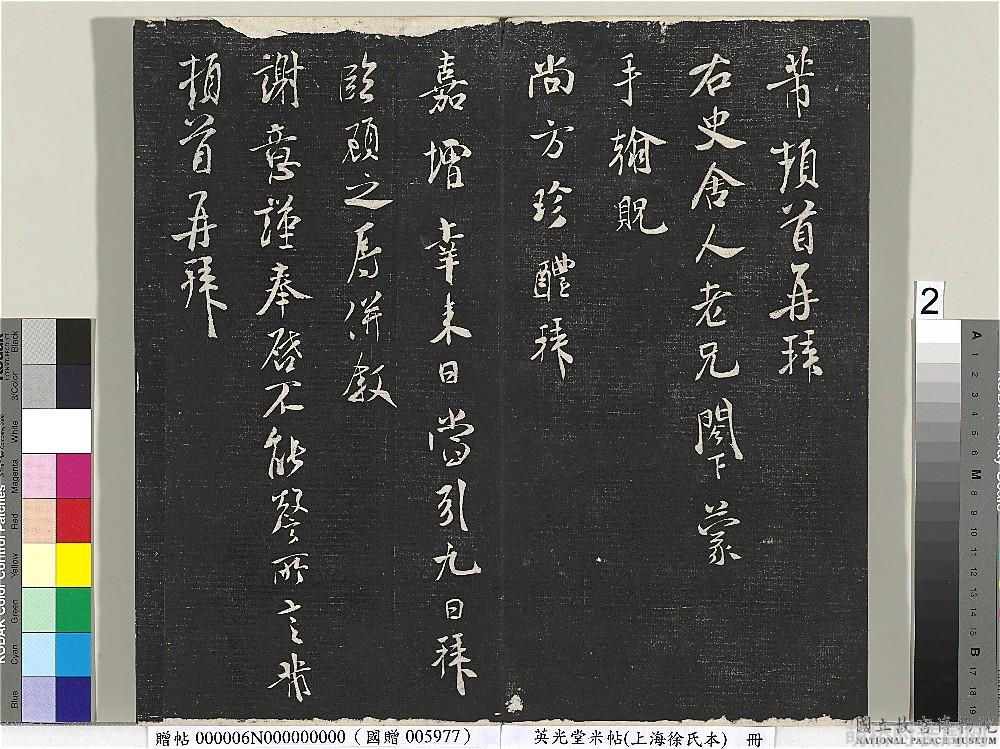 芾頓首再拜
右史舍人老兄閣下蒙
手翰貺
尚方珍醴拜
嘉增幸來日當引九日拜
臨顧之辱併敘
謝意謹奉啓不能罄所言芾
頓首再拜
2
贈帖 000006N000000000 (國贈 005977)
英光堂米帖(上海徐氏本) 冊
國立故宮博物院
NATIONAL PALACE MUSEUM
Black
3/Color
White
Magenta
Red
Yellow
Green
Cyan
Blue
A
1
2
3
4
5
6
M
8
9
10
11
12
13
14
15
B
17
18
19